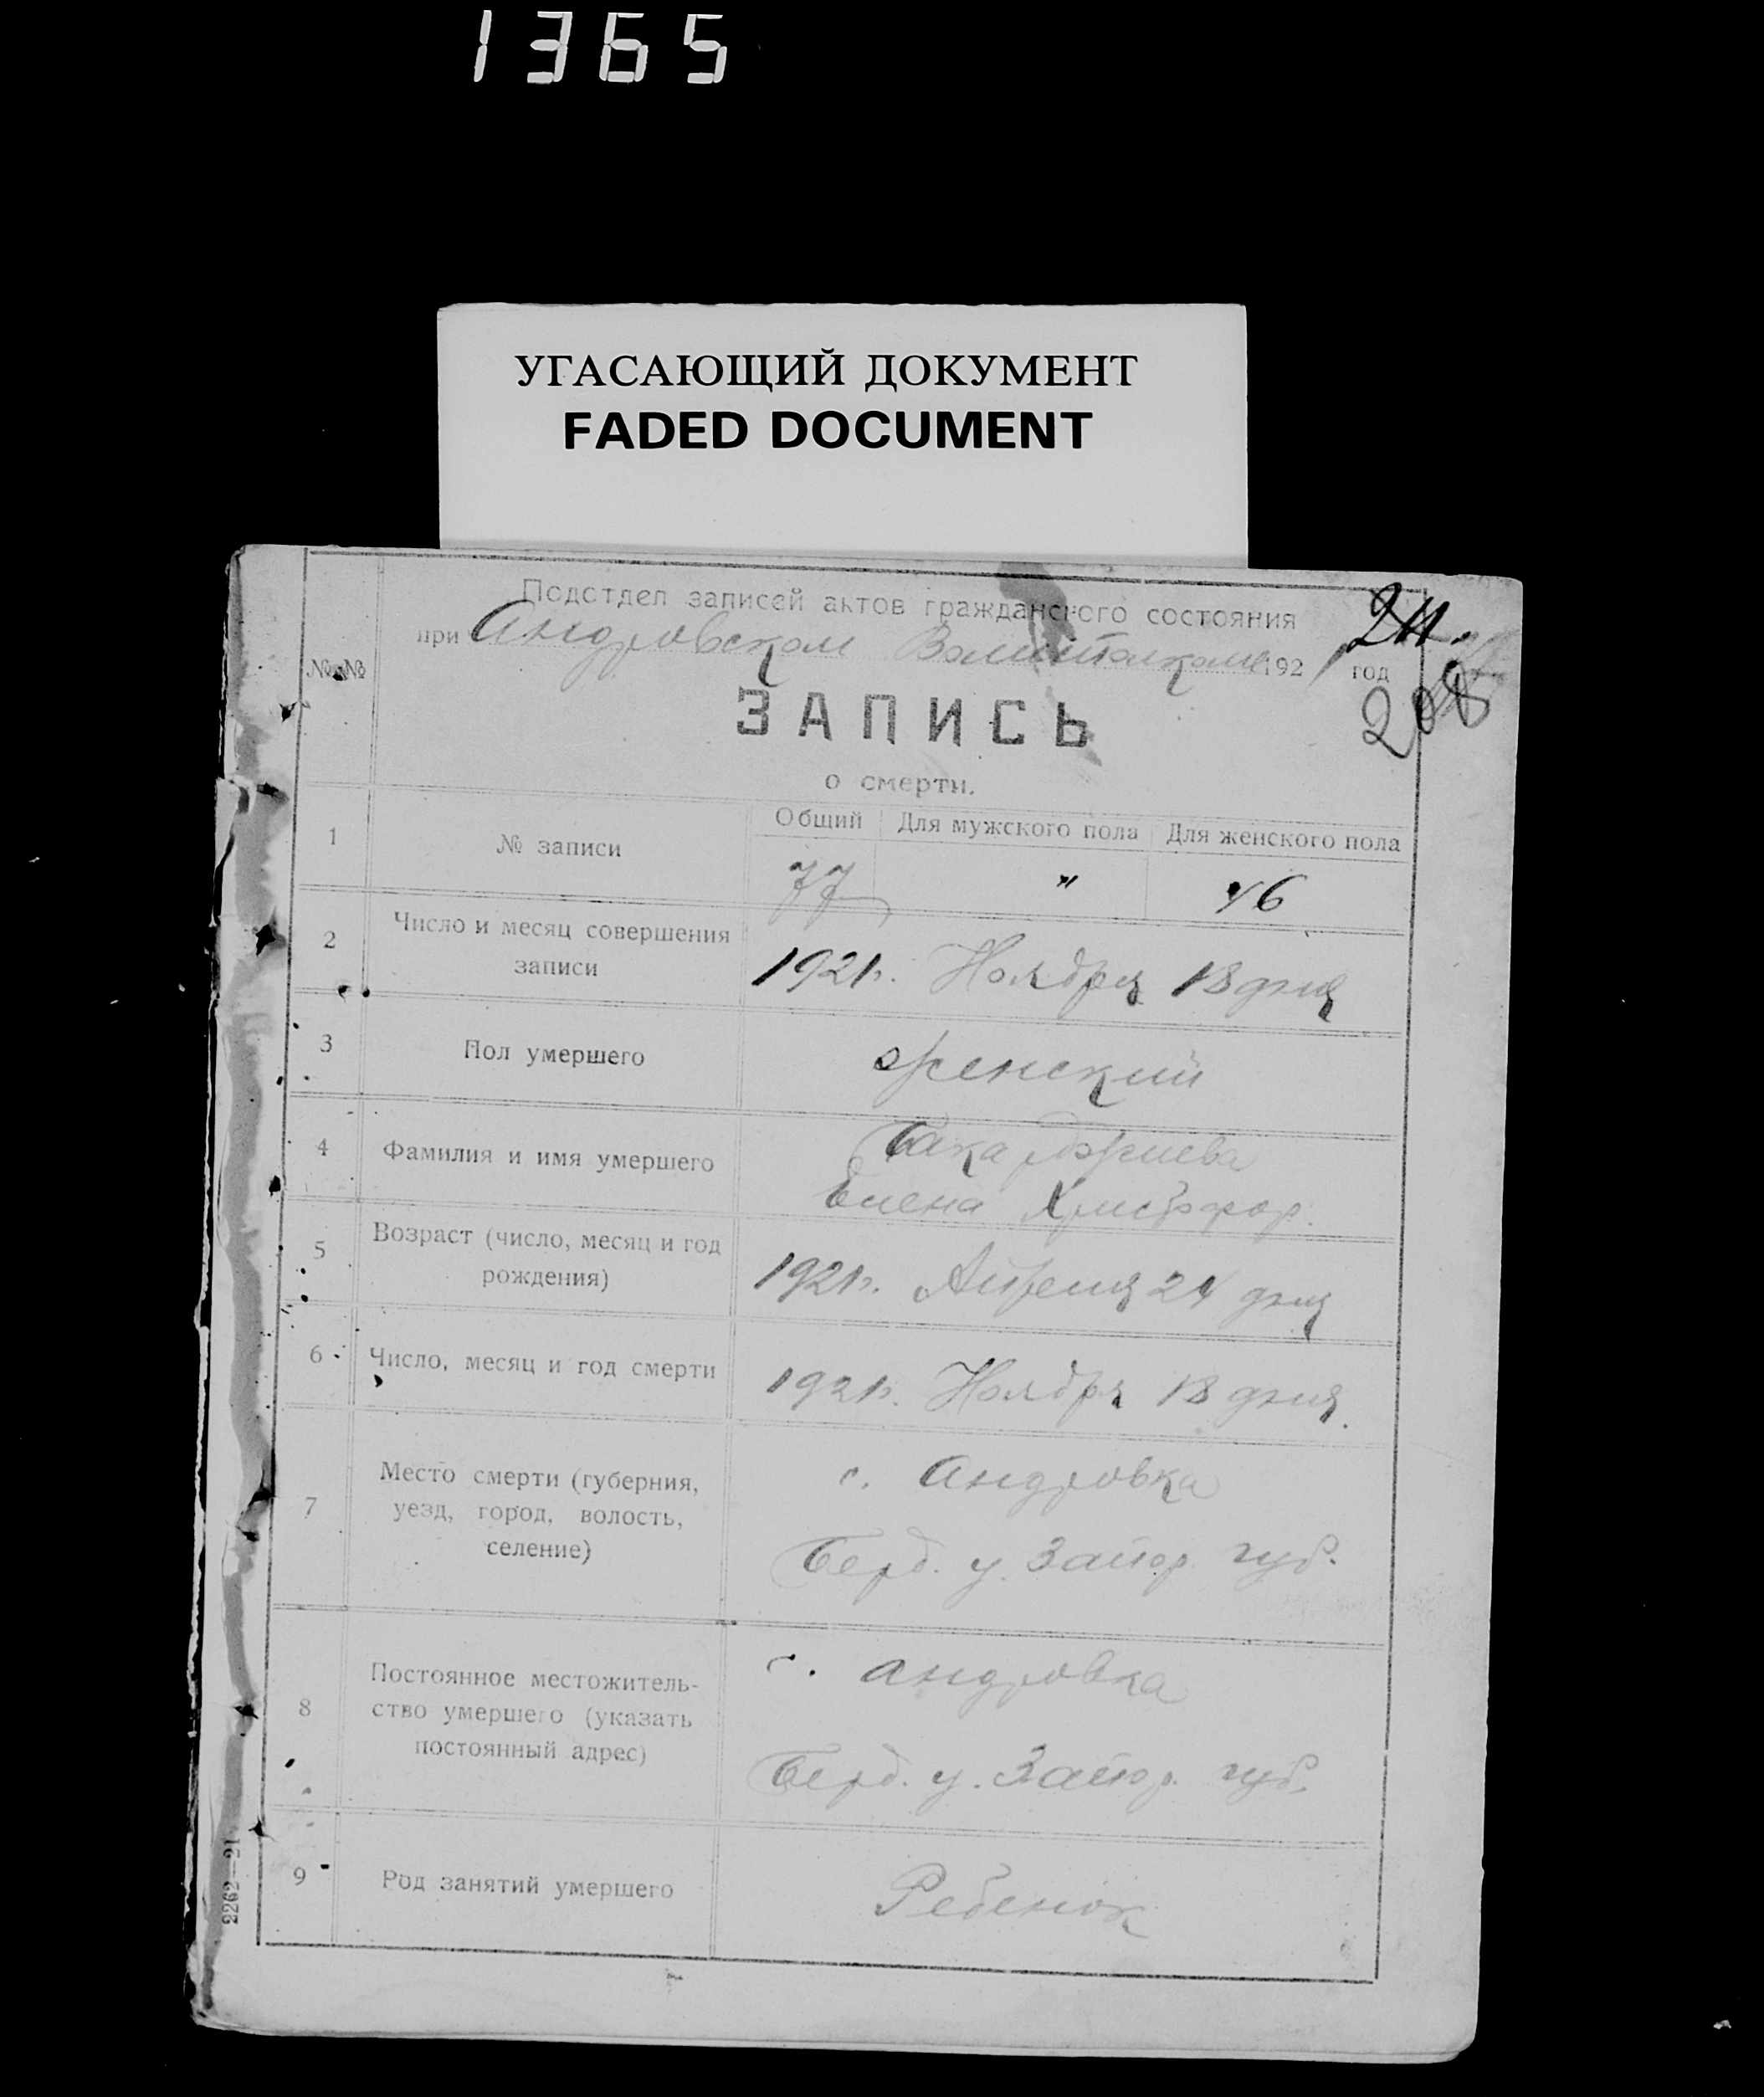 1365
УГАСАЮЩИЙ ДОКУМЕНТ
FADED DOCUMENT
Подотдел записей актов гражданского состояния
при Андровском Волисполкоме 1921 год
208
№№
ЗАПИСЬ
о смерти.
1 № записи
Общий Для мужского пола Для женского пола
77 " 46
2 Число и месяц совершения
записи
1921г. Ноября 18 дня
3 Пол умершего женский
4 Фамилия и имя умершего
Елена Христофор.
5 Возраст (число, месяц и год
рождения)
1921г. Апреля 24 дня
6 Число, месяц и год смерти
1921г. Ноября 18 дня
7 Место смерти (губерния,
уезд, город, волость,
селение)
с. Андровка
Берд. у. Запор. губ.
8 Постоянное местожитель-
ство умершего (указать
постоянный адрес)
с. Андровка
Берд. у. Запор. губ.
9 Род занятий умершего Ребенок
2262—21